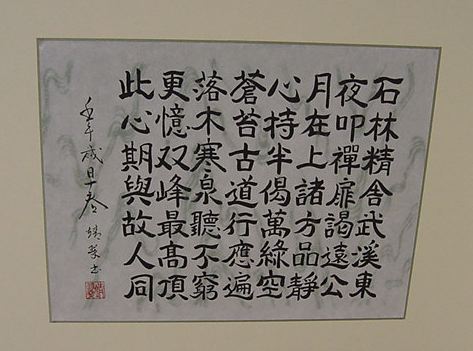 石林精舍武溪東
夜叩禪扉謁遠公
月在上諸方品靜
心持半偈萬緣空
蒼苔古道行應遍
落木寒泉聽不窮
更憶双峰最高頂
此心期與故人同
壬午歲早春